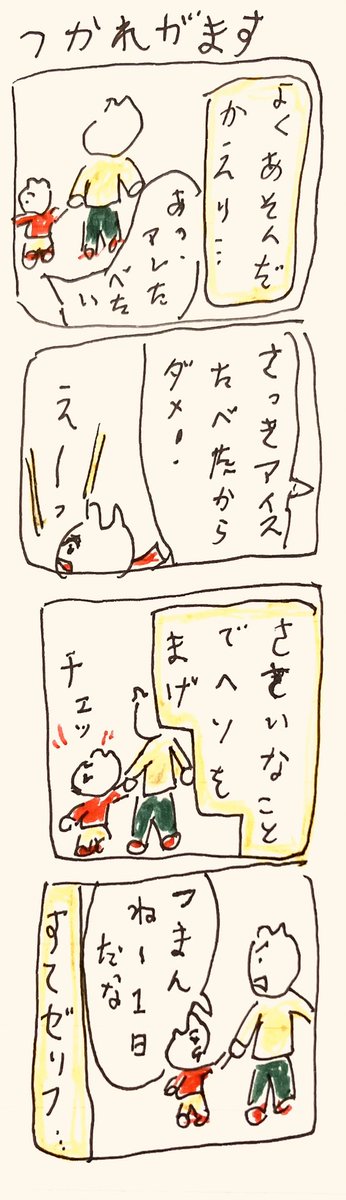 つかれがます
よくあそんだ
かえり…
あっ、
アレた
べた
い
さっきアイス
たべたから
ダメ!
えーっ
ささいなこと
でヘソを
まげ
チェッ
つまん
ねー1日
だな
すてゼリフ…